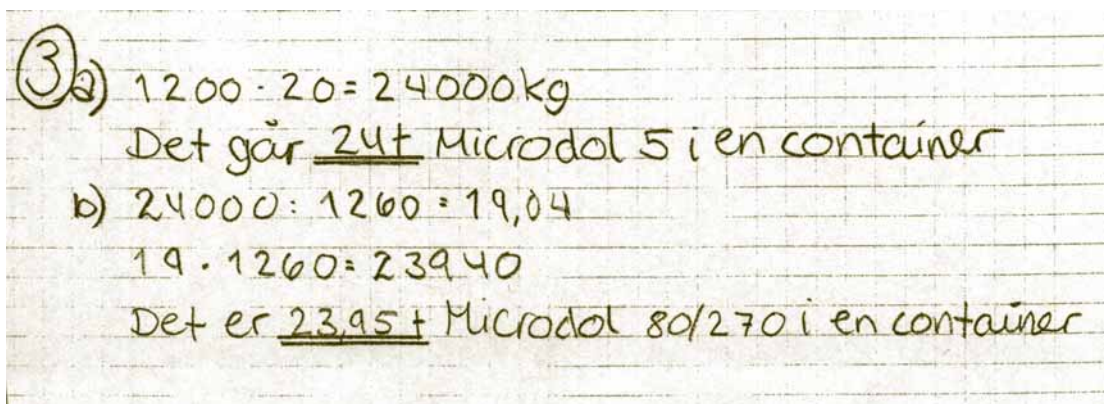 3 a) 1200 · 20 = 24000kg
Det går 24t Microdol 5 i en container
b) 24000 : 1260 = 19,04
19 · 1260 = 23940
Det er 23,95t Microdol 80/270 i en container